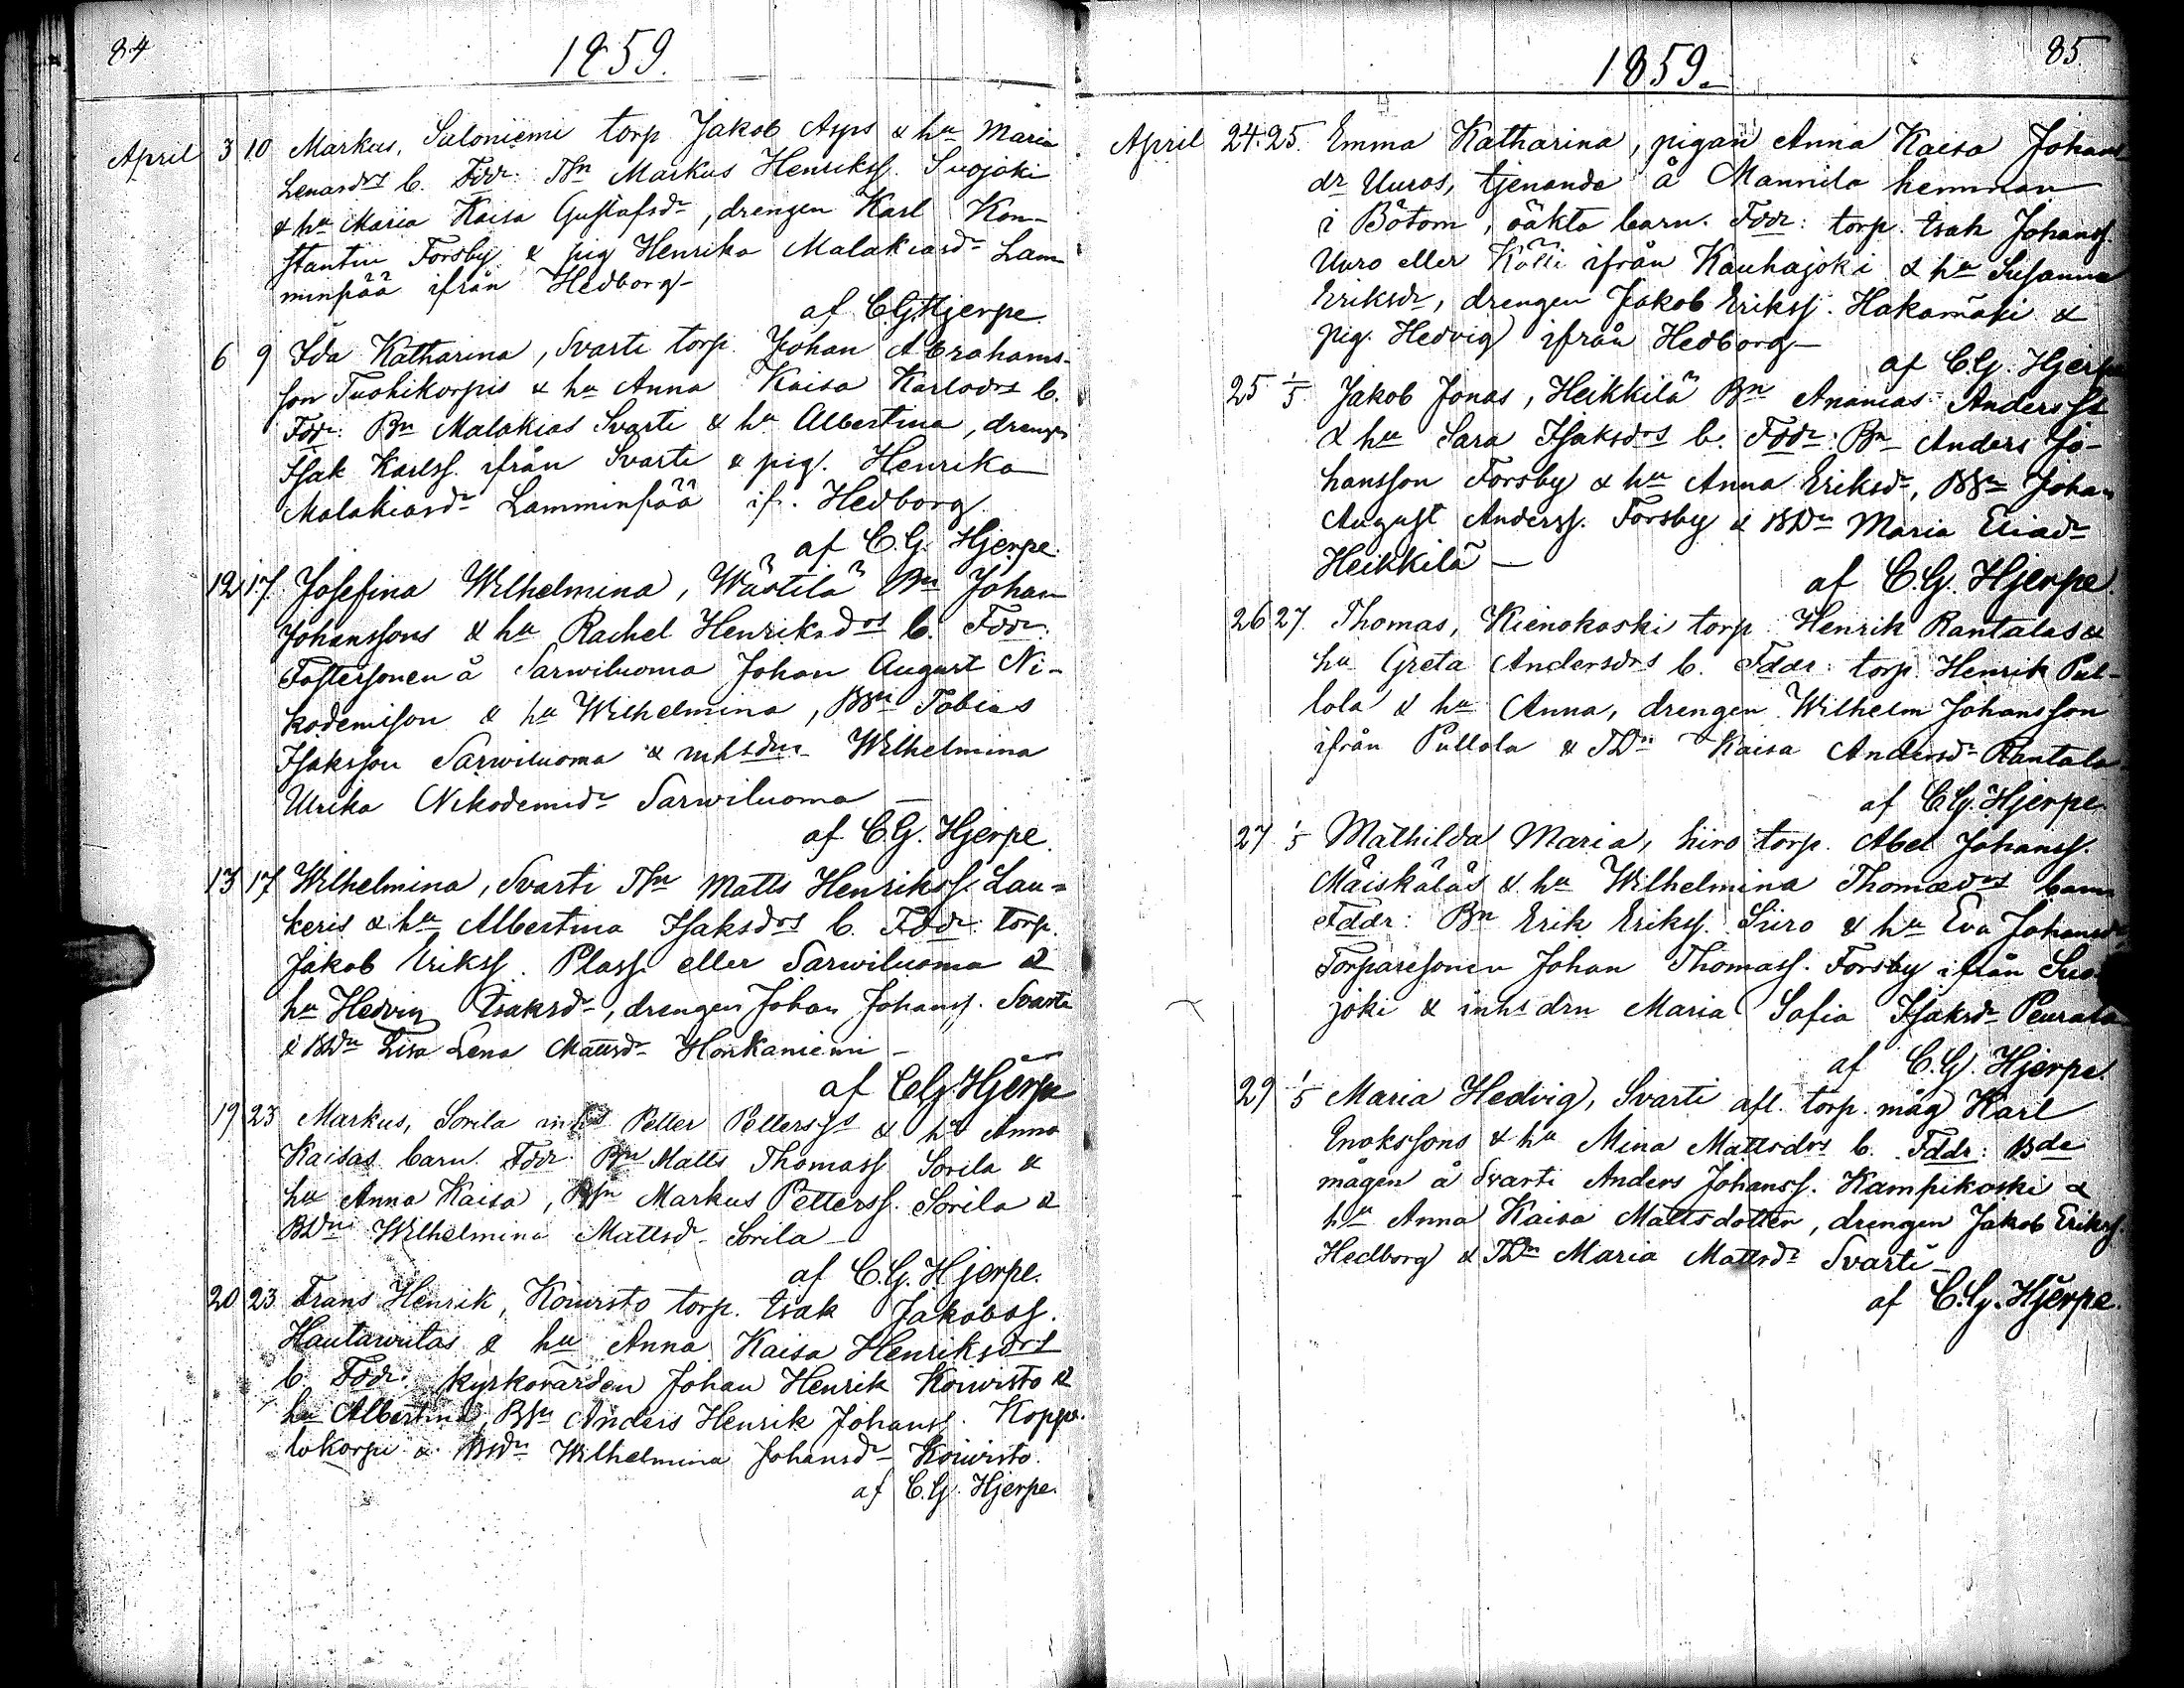 84
1859.
April 3 10 Markus, Saloniemi torp Jakob Asps & hu Maria
Lenardrs b. Fddr: TSn Markus Henrikss. Suojoki
& hu Maria Kaisa Gustafsdr, drengen Karl Kon-
stantin Forsby & pig Henrika Malakiasdr Lam-
minpää ifrån Hedborg-
af CGHjerpe.
6 9 Ida Katharina, Svarti torp. Johan Abrahams-
son Tuohikorpis & hu Anna Kaisa Karlsdrs b.
Fddr: Bn Malakias Svarti & hu Albertina, drengen
Isak Karlss. ifrån Svarti & pig. Henrika
Malakiasdr Lamminpää ifr. Hedborg.
af C.G. Hjerpe.
12 17 Josefina Wilhelmina, Wästilä Bn Johan
Johanssons & hu Rachel Henriksdrs b. Fddr:
Fostersonen å Sarwiluoma Johan August Ni-
kodemison & hu Wilhelmina, BSn Tobias
Isaksson Sarwiluoma & inhsdrn Wilhelmina
Ulrika Nikodemidr Sarwiluoma —
af C.G. Hjerpe.
13 17 Wilhelmina, Svarti TSn Matts Henrikss. Lau-
keris & hu Albertina Isaksdrs b. Fddr: torp.
Jakob Erikss. Plass eller Sarwiluoma &
hu Hedvig Isaksdr, drengen Johan Johanss. Svarti
& BDn Lisa Lena Mattsdr Honkaniemi -
af C.G. Hjerpe
19 23 Markus, Sorila inhs Petter Petterss & hu Anna
Kaisas barn. Fddr Bn Matts Thomass Sorila &
hu Anna Kaisa, BSn Markus Petterss. Sorila &
BDn Wilhelmina Mattsd- Sorila -
af C.G. Hjerpe.
20 23 Frans Henrik, Koivisto torp. Isak Jakobss.
& hu Anna Kaisa Henriksdrs
b Fddr: kyrkovärden Johan Henrik Koivisto &
hu Albertina, BSn Anders Henrik Johanss. Koppe-
lokorpi & BDn Wilhelmina Johansdr Koivisto.
af C.G. Hjerpe.
1859.
85
April 24. 25. Emma Katharina, pigan Anna Kaisa Johans-
dr Uuros, tjenande å Mannila hemman
i Bötom, oäkta barn. Fddr: torp. Isak Johanss.
Uuro eller ifrån Kauhajoki & hu Susanna
Eriksdr, drengen Jakob Erikss. Hakamäki &
pig. Hedvig ifrån Hedborg-
af C.G. Hjerpe
25 1/5 Jakob Jonas, Heikkilä Bn Ananias Anderss
& hu Sara Isaksdrs b. Fddr: Bn Anders Jo-
hansson Forsby & hu Anna Eriksdr, BSn Johan
August Anderss. Forsby & BDn Maria Eliadr
Heikkilä —
af C.G. Hjerpe.
26 27. Thomas, Kienokoski torp. Henrik Rantalas &
hu Greta Andersdrs b. Fddr: torp. Henrik Pul-
lola & hu Anna, drengen Wilhelm Johansson
ifrån Pullola & TDn Kaisa Andersdr Rantala.
af C.G. Hjerpe.
27 1/5 Mathilda Maria, Siiro torp. Abel Johanss.
Mäiskäläs & hu Wilhelmina Thomædrs barn
Fddr: Bn Erik Erikss. Siiro & hu Eva Johansdr
Torparesonen Johan Thomass. Forsby ifrån Suo-
joki & inhsdrn Maria Sofia Isaksdr Peurala
af C.G. Hjerpe.
29 1/5 Maria Hedvig, Svarti afl. torp. måg Karl
Enokssons & hu Mina Mattsdrs b. Fddr: Bde
mågen å Svarti Anders Johanss. Kampikoski &
hu Anna Kaisa Mattsdotter, drengen Jakob Erikss.
Hedborg & TDn Maria Mattsdr Svarti -
af C.G. Hjerpe.